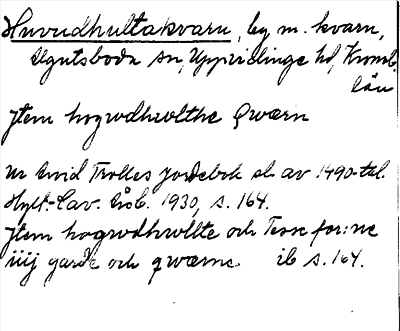 Huvudhultakvarn, by m. kvarn,
Älgutsboda sn, Uppvidinge hd, Kronob.
län
Jtem hogwdhwlthe Qwærn
ur Arvid Trolles jordebok sl. av 1490-tal.
Hylt.-Cav. årsb. 1930, s. 164.
Jtem hogwdhwllte och Tesse for:ne
iiij garde och qwærne ib s. 164.